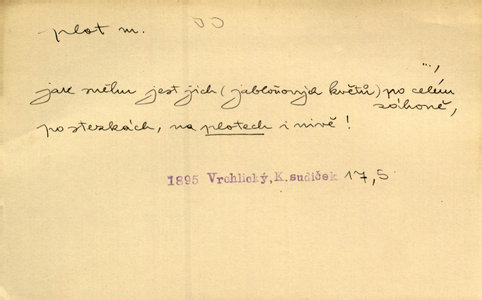 plot m.
..., 
jak sněhu jest jich (jabloňových květů) po celém
záhoně,
po stezkách, na plotech i nivě!
1895 Vrchlický, K.sudiček 17,5